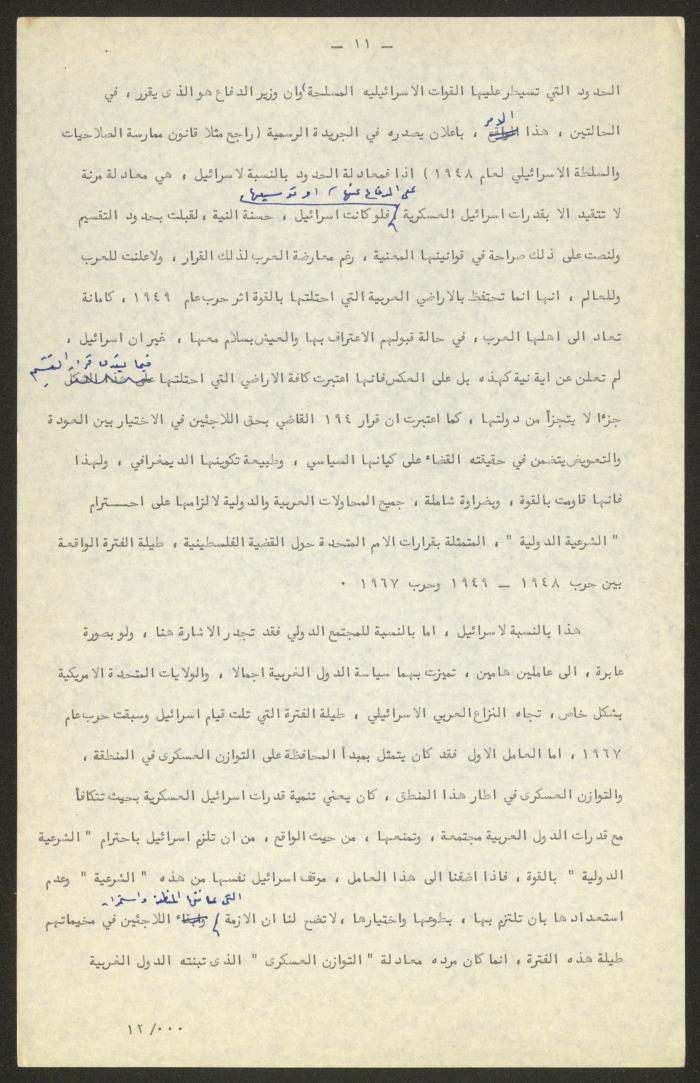 — ١١ —
الحدود التي تسيطر عليها القوات الاسرائيليه المسلحة وان وزير الدفاع هو الذى يقرر ، في
الامر
الحالتين ، هذا الواقع ، باعلان يصدره في الجريدة الرسمية (راجع مثلا قانون ممارسة الصلاحيات
والسلطة الاسرائيلي لعام ١٩٤٨) اذا فمعادلة الحدود بالنسبة لاسرائيل ، هي معادلة مرنة
على الدفاع عنها ، او توسيعها ،
لا تتقيد الا بقدرات اسرائيل العسكرية فلو كانت اسرائيل ، حسنة النية ، لقبلت بحدود التقسيم
ولنصت على ذلك صراحة في قوانينها المعنية ، رغم معارضة العرب لذلك القرار ، ولاعلنت للعرب
وللعالم ، انها انما تحتفظ بالاراضي العربية التي احتلتها بالقوة اثر حرب عام ١٩٤٩ ، كامانة
تعاد الى اهلها العرب ، في حالة قبولهم الاعتراف بها والعيش بسلام معها ، غير ان اسرائيل ،
فيما يتعدى قرار التقسيم
لم تعلن عن اية نية كهذه بل على العكس فانها اعتبرت كافة الاراضي التي احتلتها على هذا الشكل
جزءا لا يتجزأ من دولتها ، كما اعتبرت ان قرار ١٩٤ القاضي بحق اللاجئين في الاختيار بين العودة
والتعويض يتضمن في حقيقته القضاء على كيانها السياسي ، وطبيعة تكوينها الديمغرافي ، ولهذا
فانها قاومت بالقوة ، وبضراوة شاملة ، جميع المحاولات العربية والدولية لالزامها على احــــترام
" الشرعية الدولية " ، المتمثلة بقرارات الامم المتحدة حول القضية الفلسطينية ، طيلة الفترة الواقعة
بين حرب ١٩٤٨ — ١٩٤٩ وحرب ١٩٦٧ .
هذا بالنسبة لاسرائيل ، اما بالنسبة للمجتمع الدولي فقد تجدر الاشارة هنا ، ولو بصورة
عابرة ، الى عاملين هامين ، تميزت بهما سياسة الدول الغربية اجمالا ، والولايات المتحدة الامريكية
بشكل خاص ، تجاه النزاع العربي الاسرائيلي ، طيلة الفترة التي تلت قيام اسرائيل وسبقت حرب عام
١٩٦٧ ، اما العامل الاول فقد كان يتمثل بمبدأ المحافظة على التوازن العسكرى في المنطقة ،
والتوازن العسكرى في اطار هذا المنطق ، كان يعني تنمية قدرات اسرائيل العسكرية بحيث تتكافأ
مع قدرات الدول العربية مجتمعة ، وتمنعها ، من حيث الواقع ، من ان تلزم اسرائيل باحترام " الشرعية
الدولية " بالقوة ، فاذا اضفنا الى هذا العامل ، موقف اسرائيل نفسها من هذه " الشرعية " وعدم
التي عانتها المنطقة واستمرار
استعدادها بان تلتزم بها ، بطوعها واختيارها ، لاتضح لنا ان الازمة وابقاء اللاجئين في مخيماتهم
طيلة هذه الفترة ، انما كان مرده معادلة " التوازن العسكرى " الذى تبنته الدول الغربية
١٢/٠٠٠